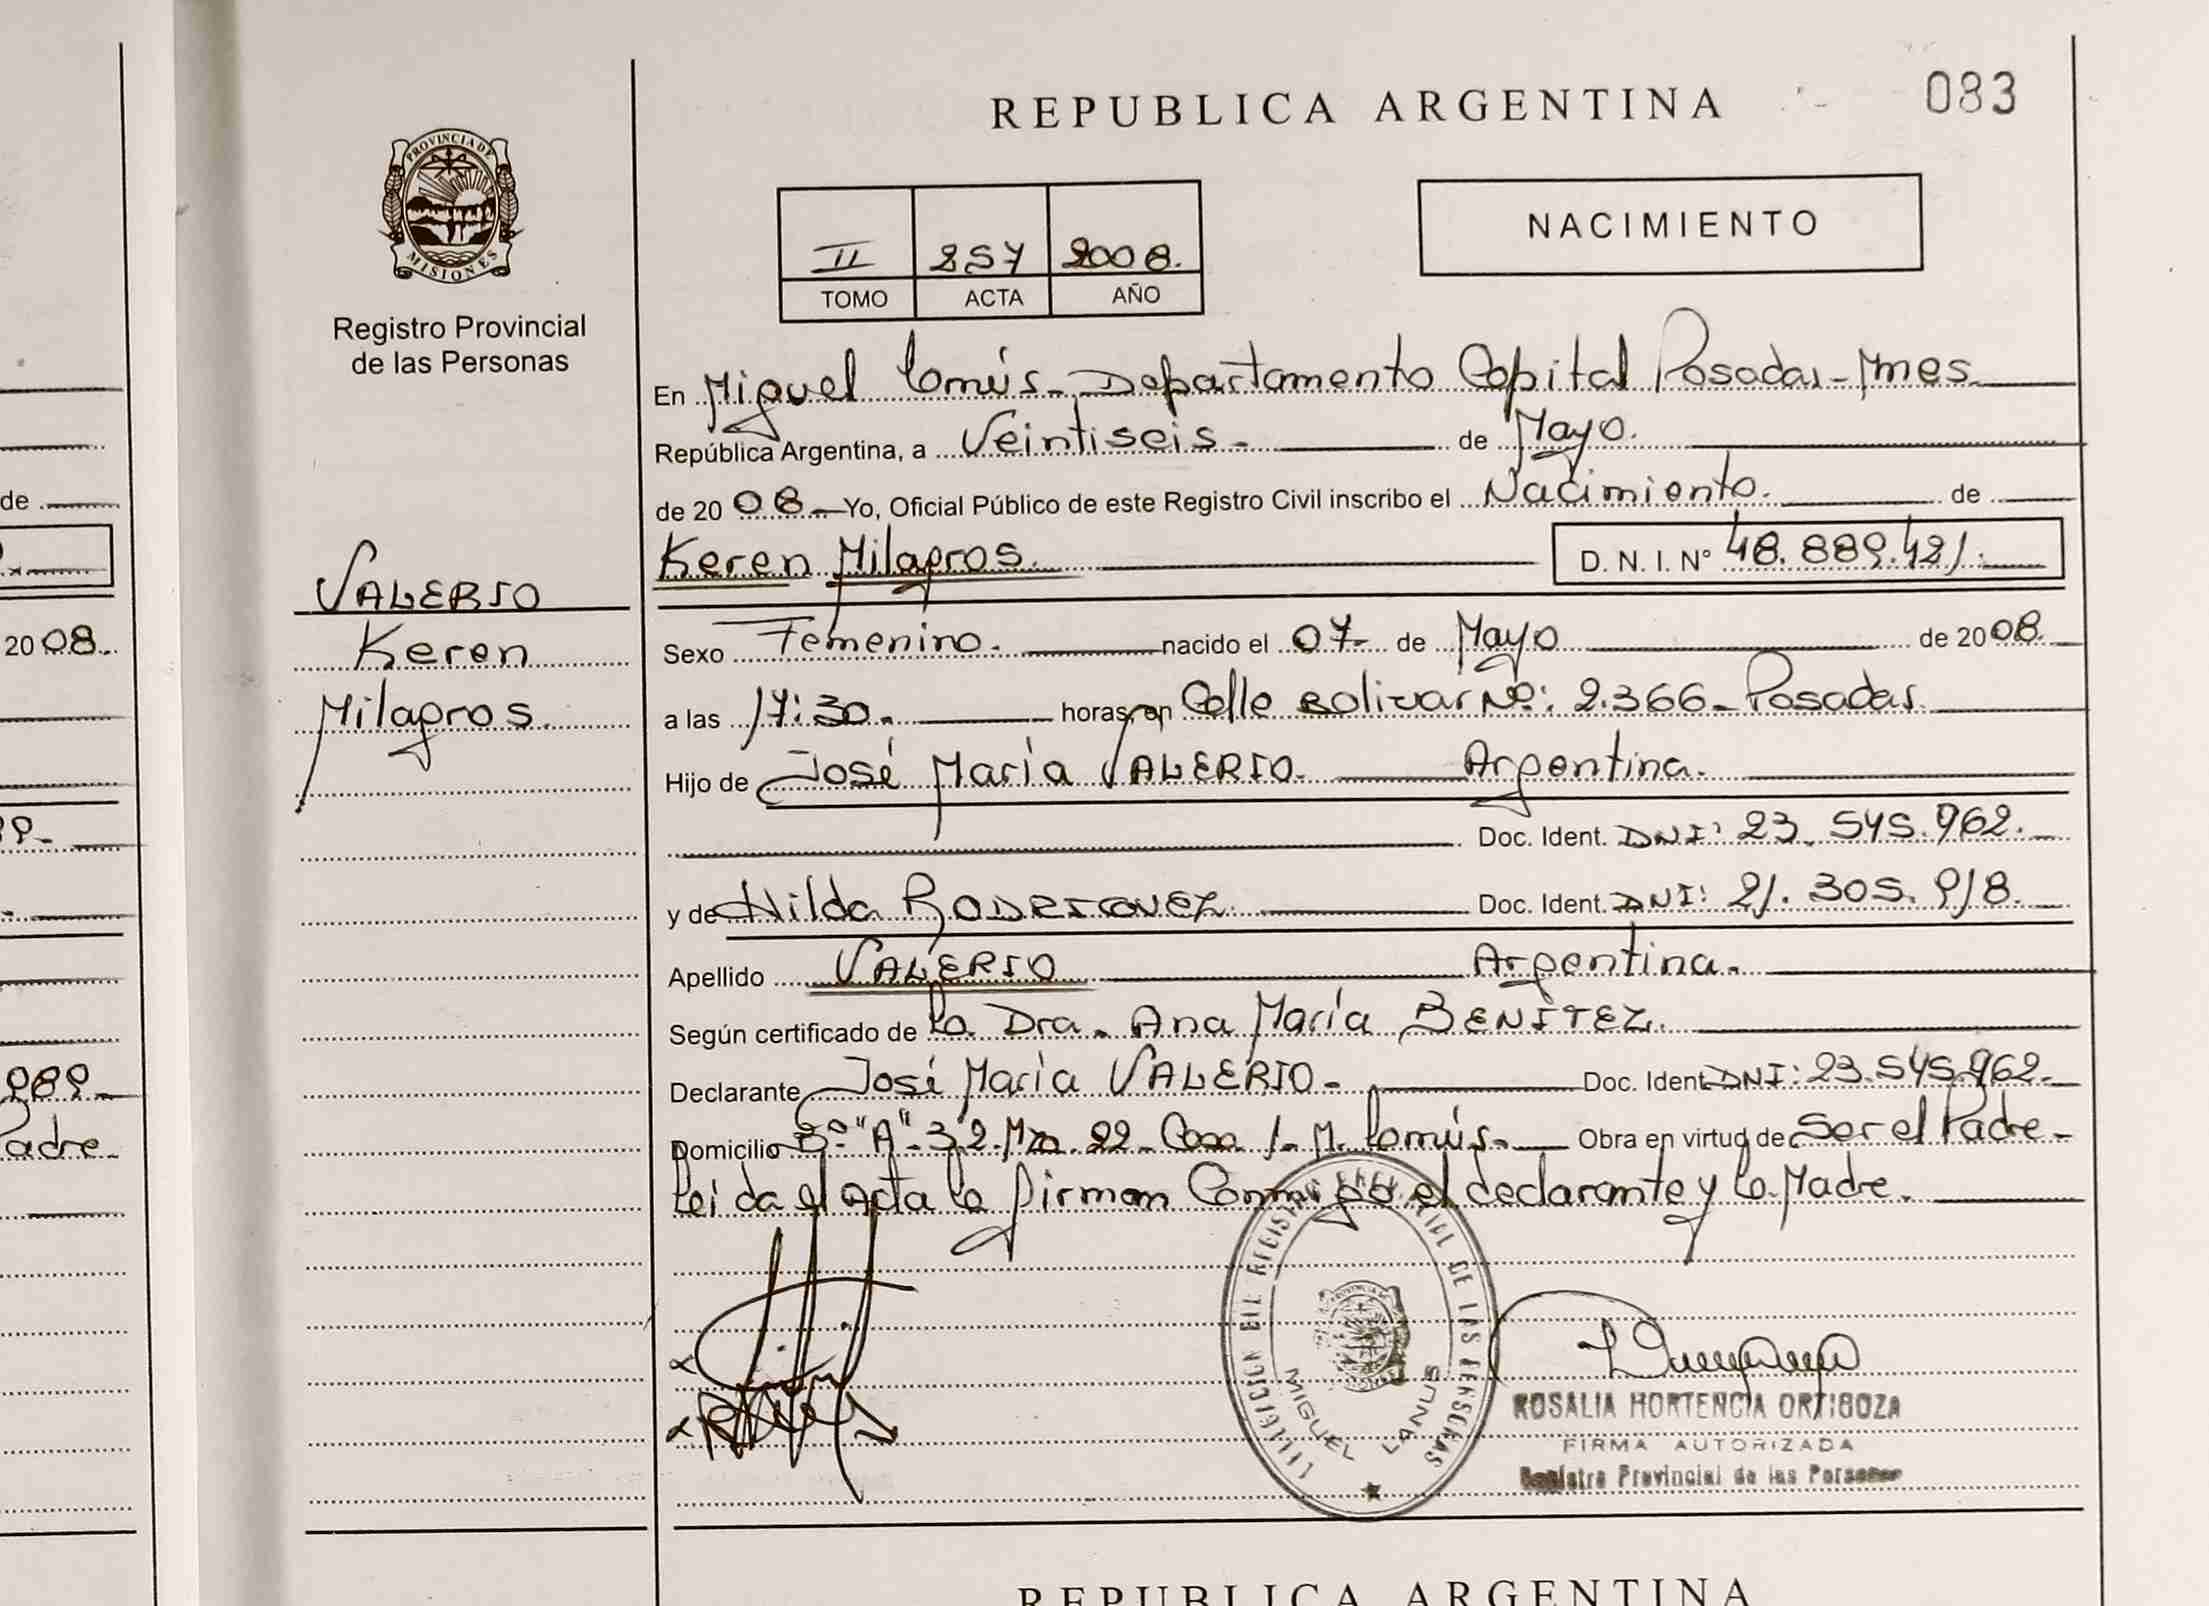 de
2008.
989.-
Padre.-
PROVINCIA DE
MISIONES
Registro Provincial
de las Personas
VALERIO
Keren
Milagros.
REPUBLICA ARGENTINA
083
II 257 2008.
TOMO ACTA AÑO
NACIMIENTO
En Miguel Lanús - Departamento Capital Posadas - Mnes.
República Argentina, a Veintiseis - de Mayo.
de 2008.- Yo, Oficial Público de este Registro Civil inscribo el Nacimiento. de
Keren Milagros. D. N. I. N° 48.889.421.
Sexo Femenino. nacido el 07- de Mayo de 2008.
a las 17:30. horas, en Calle Bolivar Nº: 2.366 - Posadas.
Hijo de José María VALERIO. Argentina.
Doc. Ident. DNI: 23.545.962.
y de Nilda RODRIGUEZ. Doc. Ident. DNI: 21.305.918.
Apellido VALERIO Argentina.
Según certificado de la Dra. Ana María BENÍTEZ.
Declarante José María VALERIO. Doc. Ident. DNI: 23.545.962.
Domicilio Bº "A" 3.2. Mza. 22 - Casa 1 - M. Lanús. Obra en virtud de Ser el Padre -
Leida el Acta la firman Conmigo el declarante y la Madre.
MIGUEL LANUS
ROSALIA HORTENCIA ORTIGOZA
FIRMA AUTORIZADA
Registro Provincial de las Personas
REPUBLICA ARGENTINA